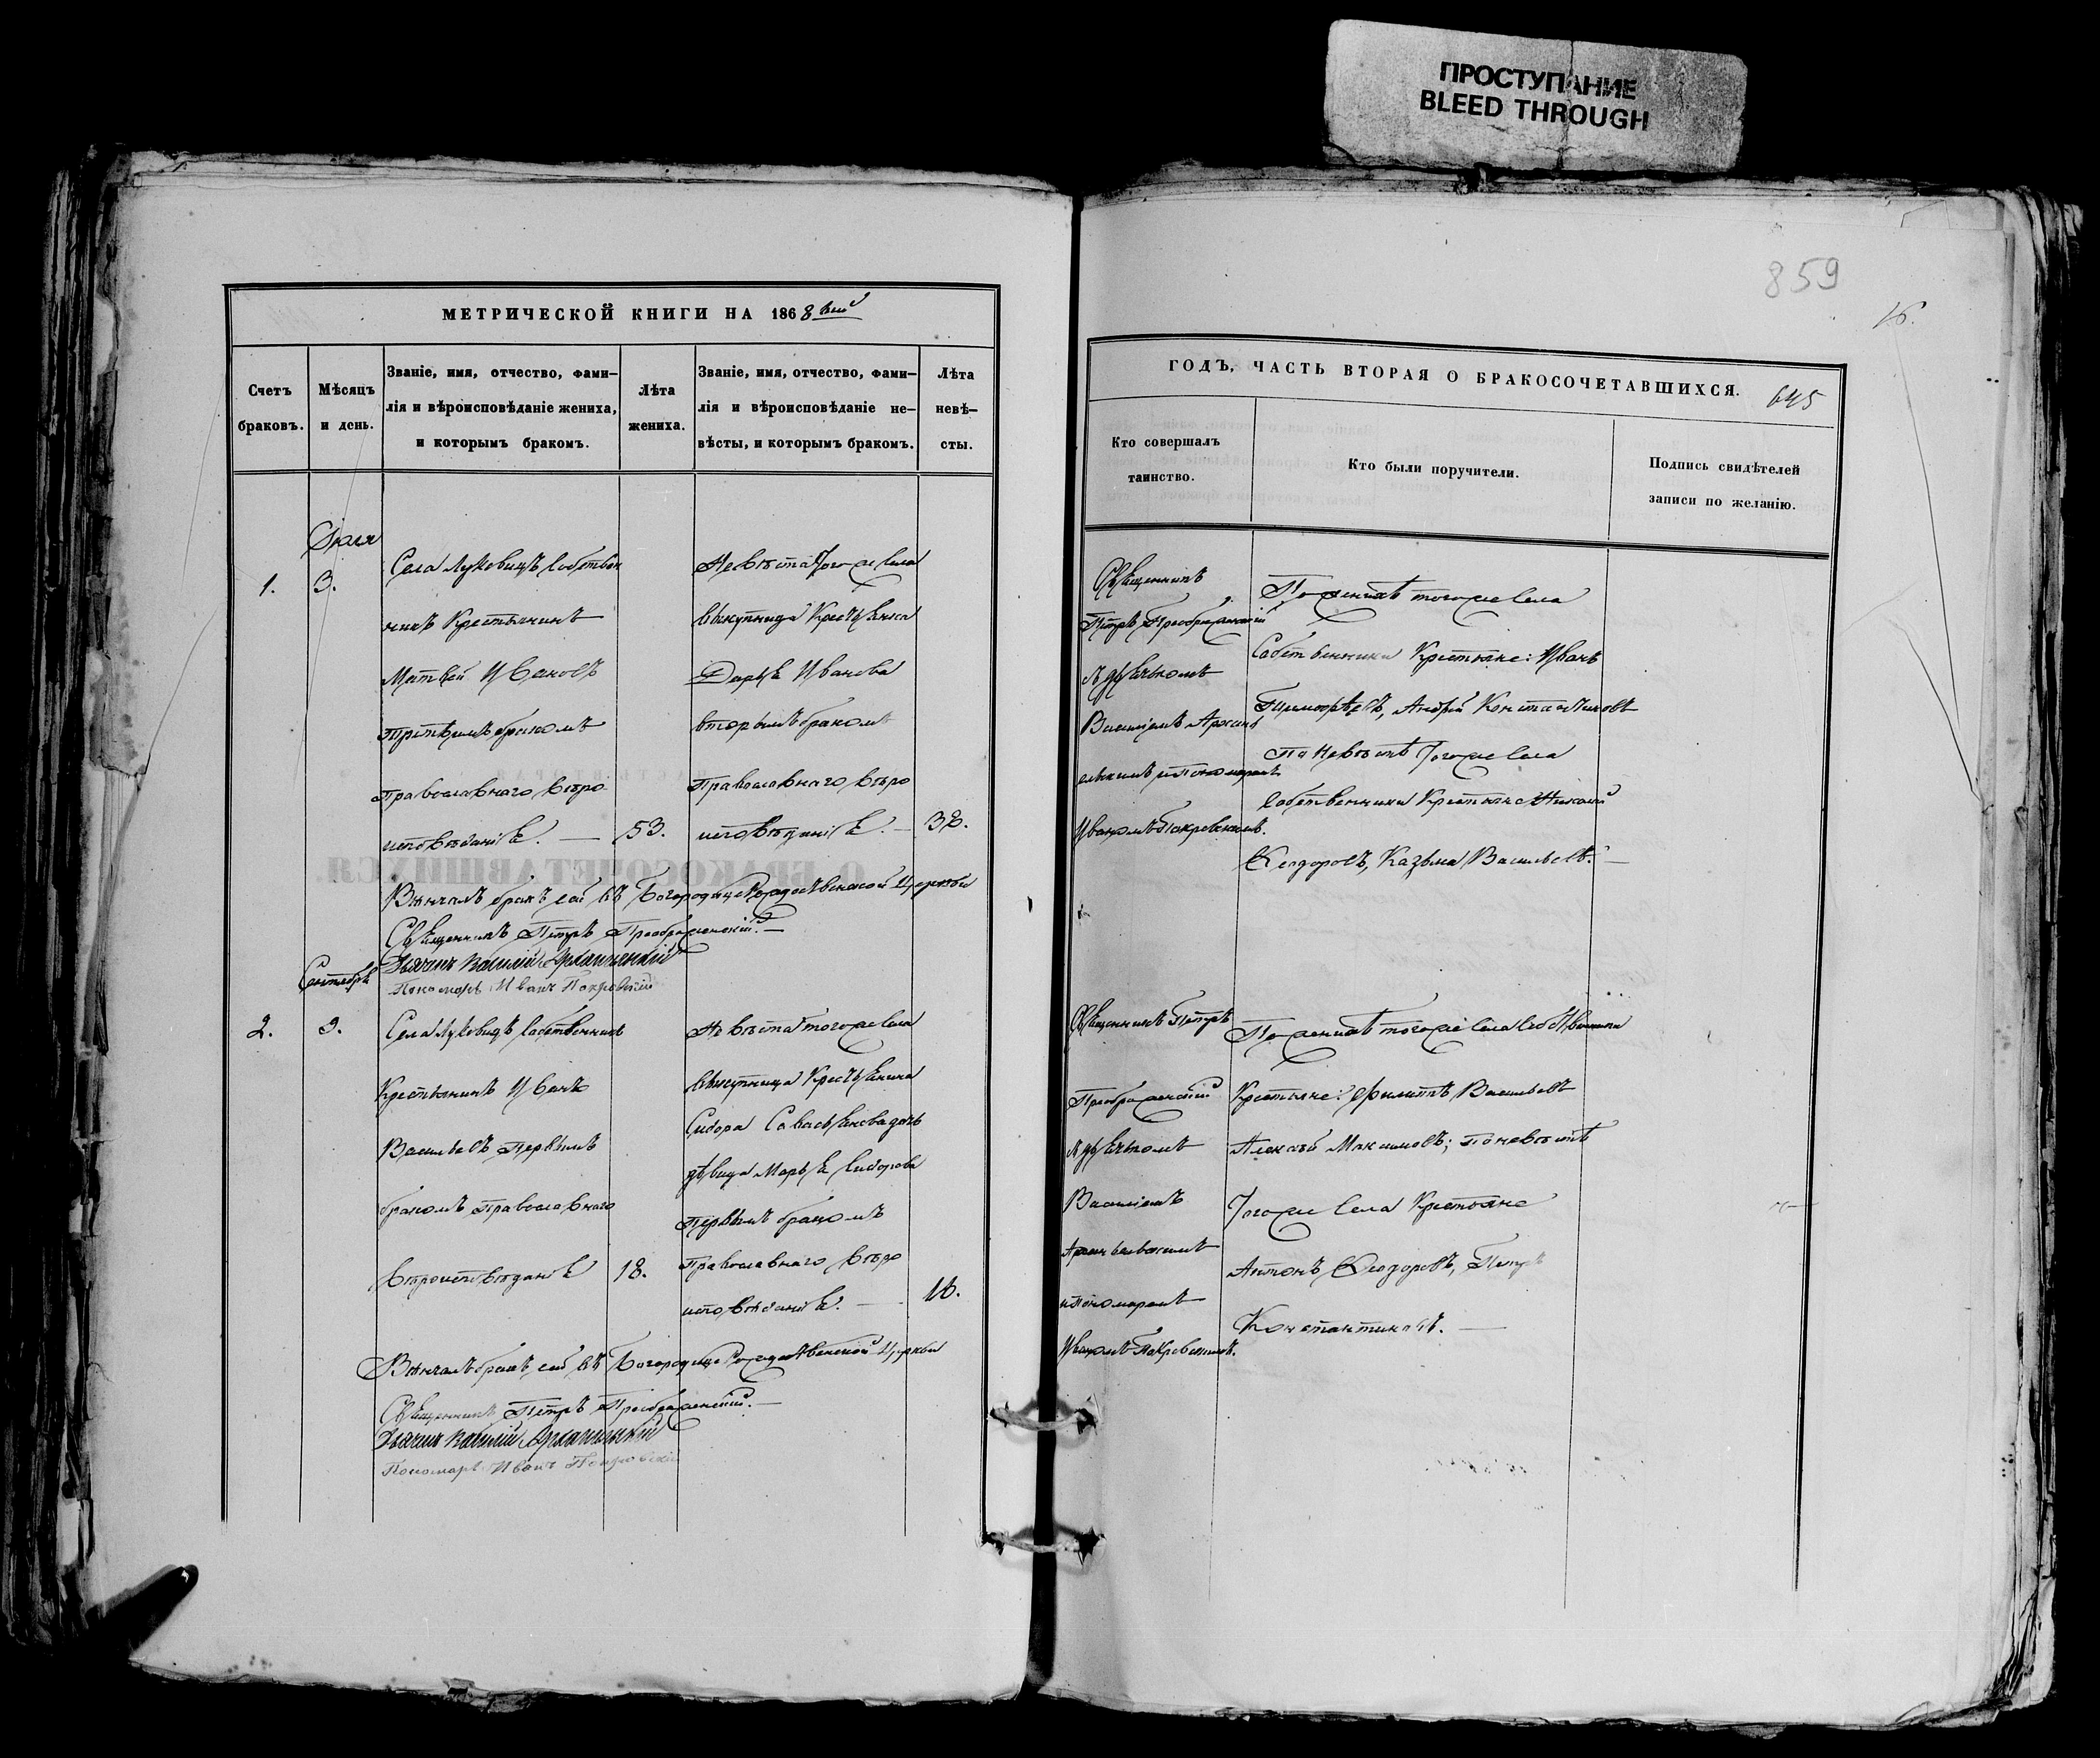 ПРОСТУПАНИЕ
BLEED THROUGH
859
16.
МЕТРИЧЕСКОЙ КНИГИ НА 1868 й
Счетъ
браковъ.
Мѣсяцъ
и день.
Званіе, имя, отчество, фами-
лія и вѣроисповѣданіе жениха,
и которымъ бракомъ.
Лѣта
жениха.
Званіе, имя, отчество, фами-
лія и вѣроисповѣданіе не-
вѣсты, и которымъ бракомъ.
Лѣта
невѣ-
сты.
Іюля
1.
3.
Села Луковицъ Собствен
никъ Крестьянинъ
Матвей Ивановъ
Третьимъ бракомъ
Православнаго вѣро
исповѣданія. —
53.
Невѣста Того же Села
Дарья Иванова
вторымъ бракомъ
Православнаго вѣро
исповѣданія. —
Вѣнчалъ бракъ сей въ Богородице Рождественской Церкви
Священникъ Петръ Преображенскій. —
Дьячекъ Василій Архангельскій
Пономарь Иванъ Покровскій
Сентября
2.
3.
Села Луковицъ Собственникъ
Крестьянинъ Иванъ
Васильевъ Первымъ
бракомъ Православнаго
вѣроисповѣданія
18.
Невѣста того же Села
дѣвица Марья Сидорова
Первымъ бракомъ
Православнаго вѣро
исповѣданія. —
16.
Вѣнчалъ бракъ сей въ Богородице Рождественской Церкви
Священникъ Петръ Преображенскій. —
Дьячекъ Василій Архангельскій
Пономарь Иванъ Покровскій
ГОДЪ, ЧАСТЬ ВТОРАЯ О БРАКОСОЧЕТАВШИХСЯ.
645
Кто совершалъ
таинство.
Кто были поручители.
Подпись свидѣтелей
записи по желанію.
Священникъ
Петръ Преображенскій
съ дьячкомъ
Василіемъ Арханг
ельскимъ и Пономаремъ
Иваномъ Покровскимъ.
По женихѣ того же Села
Собственники Крестьяне: Иванъ
Тимофѣевъ, Андрей Константиновъ
По Невѣстѣ Того же Села
Собственники Крестьяне Николай
Ѳеодоровъ, Казьма Васильевъ. —
Священникъ Петръ
Преображенскій
съ дьячкомъ
Василіемъ
Архангельскимъ
и Пономаремъ
Иваномъ Покровскимъ.
По женихѣ того же Села Собственники
Крестьяне: Филиппъ Васильевъ
Алексѣй Максимовъ; По невѣстѣ
Того же Села Крестьяне
Антонъ Ѳеодоровъ, Петръ
Константиновъ. —